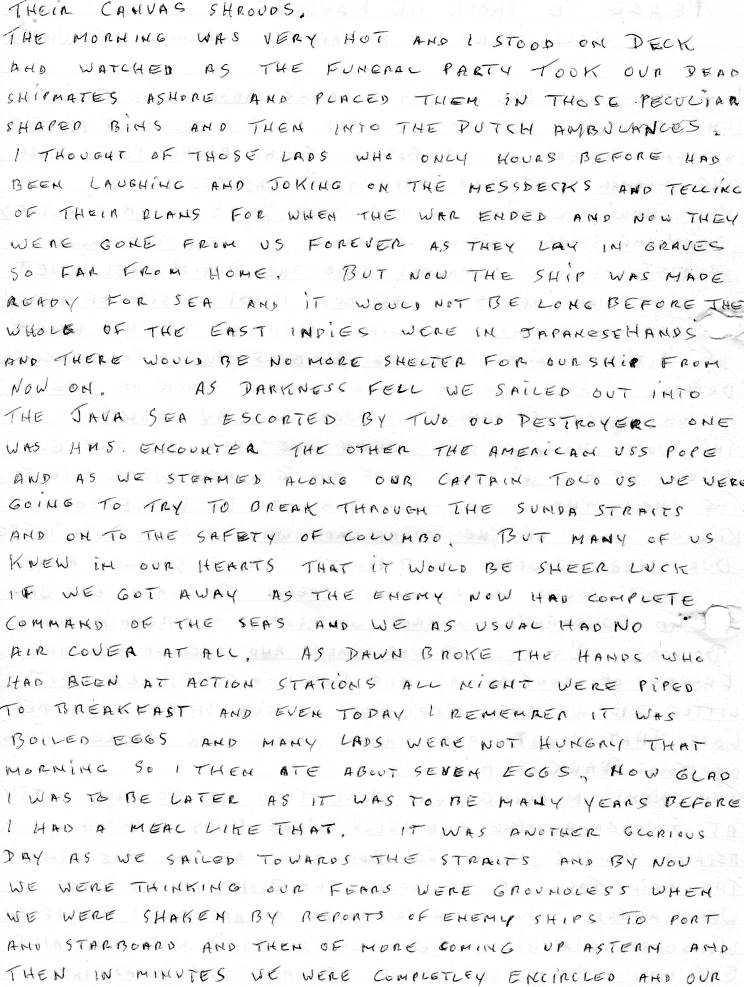 THEIR CANVAS SHROUDS.
THE MORNING WAS VERY HOT AND I STOOD ON DECK
AND WATCHED AS THE FUNERAL PARTY TOOK OUR DEAD
SHIPMATES ASHORE AND PLACED THEM IN THOSE PECULIAR
SHAPED BINS AND THEN INTO THE DUTCH AMBULANCES.
I THOUGHT OF THOSE LADS WHO ONLY HOURS BEFORE HAD
BEEN LAUGHING AND JOKING ON THE MESSDECKS AND TELLING
OF THEIR PLANS FOR WHEN THE WAR ENDED AND NOW THEY
WERE GONE FROM US FOREVER AS THEY LAY IN GRAVES
SO FAR FROM HOME. BUT NOW THE SHIP WAS MADE
READY FOR SEA AND IT WOULD NOT BE LONG BEFORE THE
WHOLE OF THE EAST INDIES WERE IN JAPANESE HANDS
AND THERE WOULD BE NO MORE SHELTER FOR OUR SHIP FROM
NOW ON. AS DARKNESS FELL WE SAILED OUT INTO
THE JAVA SEA ESCORTED BY TWO OLD DESTROYERS ONE
WAS HMS. ENCOUNTER THE OTHER THE AMERICAN USS POPE
AND AS WE STEAMED ALONG OUR CAPTAIN TOLD US WE WERE
GOING TO TRY TO BREAK THROUGH THE SUNDA STRAITS
AND ON TO THE SAFETY OF COLUMBO. BUT MANY OF US
KNEW IN OUR HEARTS THAT IT WOULD BE SHEER LUCK
IF WE GOT AWAY AS THE ENEMY NOW HAD COMPLETE
COMMAND OF THE SEAS AND WE AS USUAL HAD NO
AIR COVER AT ALL. AS DAWN BROKE THE HANDS WHO
HAD BEEN AT ACTION STATIONS ALL NIGHT WERE PIPED
TO BREAKFAST AND EVEN TODAY I REMEMBER IT WAS
BOILED EGGS AND MANY LADS WERE NOT HUNGRY THAT
MORNING SO I THEN ATE ABOUT SEVEN EGGS, HOW GLAD
I WAS TO BE LATER AS IT WAS TO BE MANY YEARS BEFORE
I HAD A MEAL LIKE THAT. IT WAS ANOTHER GLORIOUS
DAY AS WE SAILED TOWARDS THE STRAITS AND BY NOW
WE WERE THINKING OUR FEARS WERE GROUNDLESS WHEN
WE WERE SHAKEN BY REPORTS OF ENEMY SHIPS TO PORT
AND STARBOARD AND THEN OF MORE COMING UP ASTERN AND
THEN IN MINUTES WE WERE COMPLETLEY ENCIRCLED AND OUR